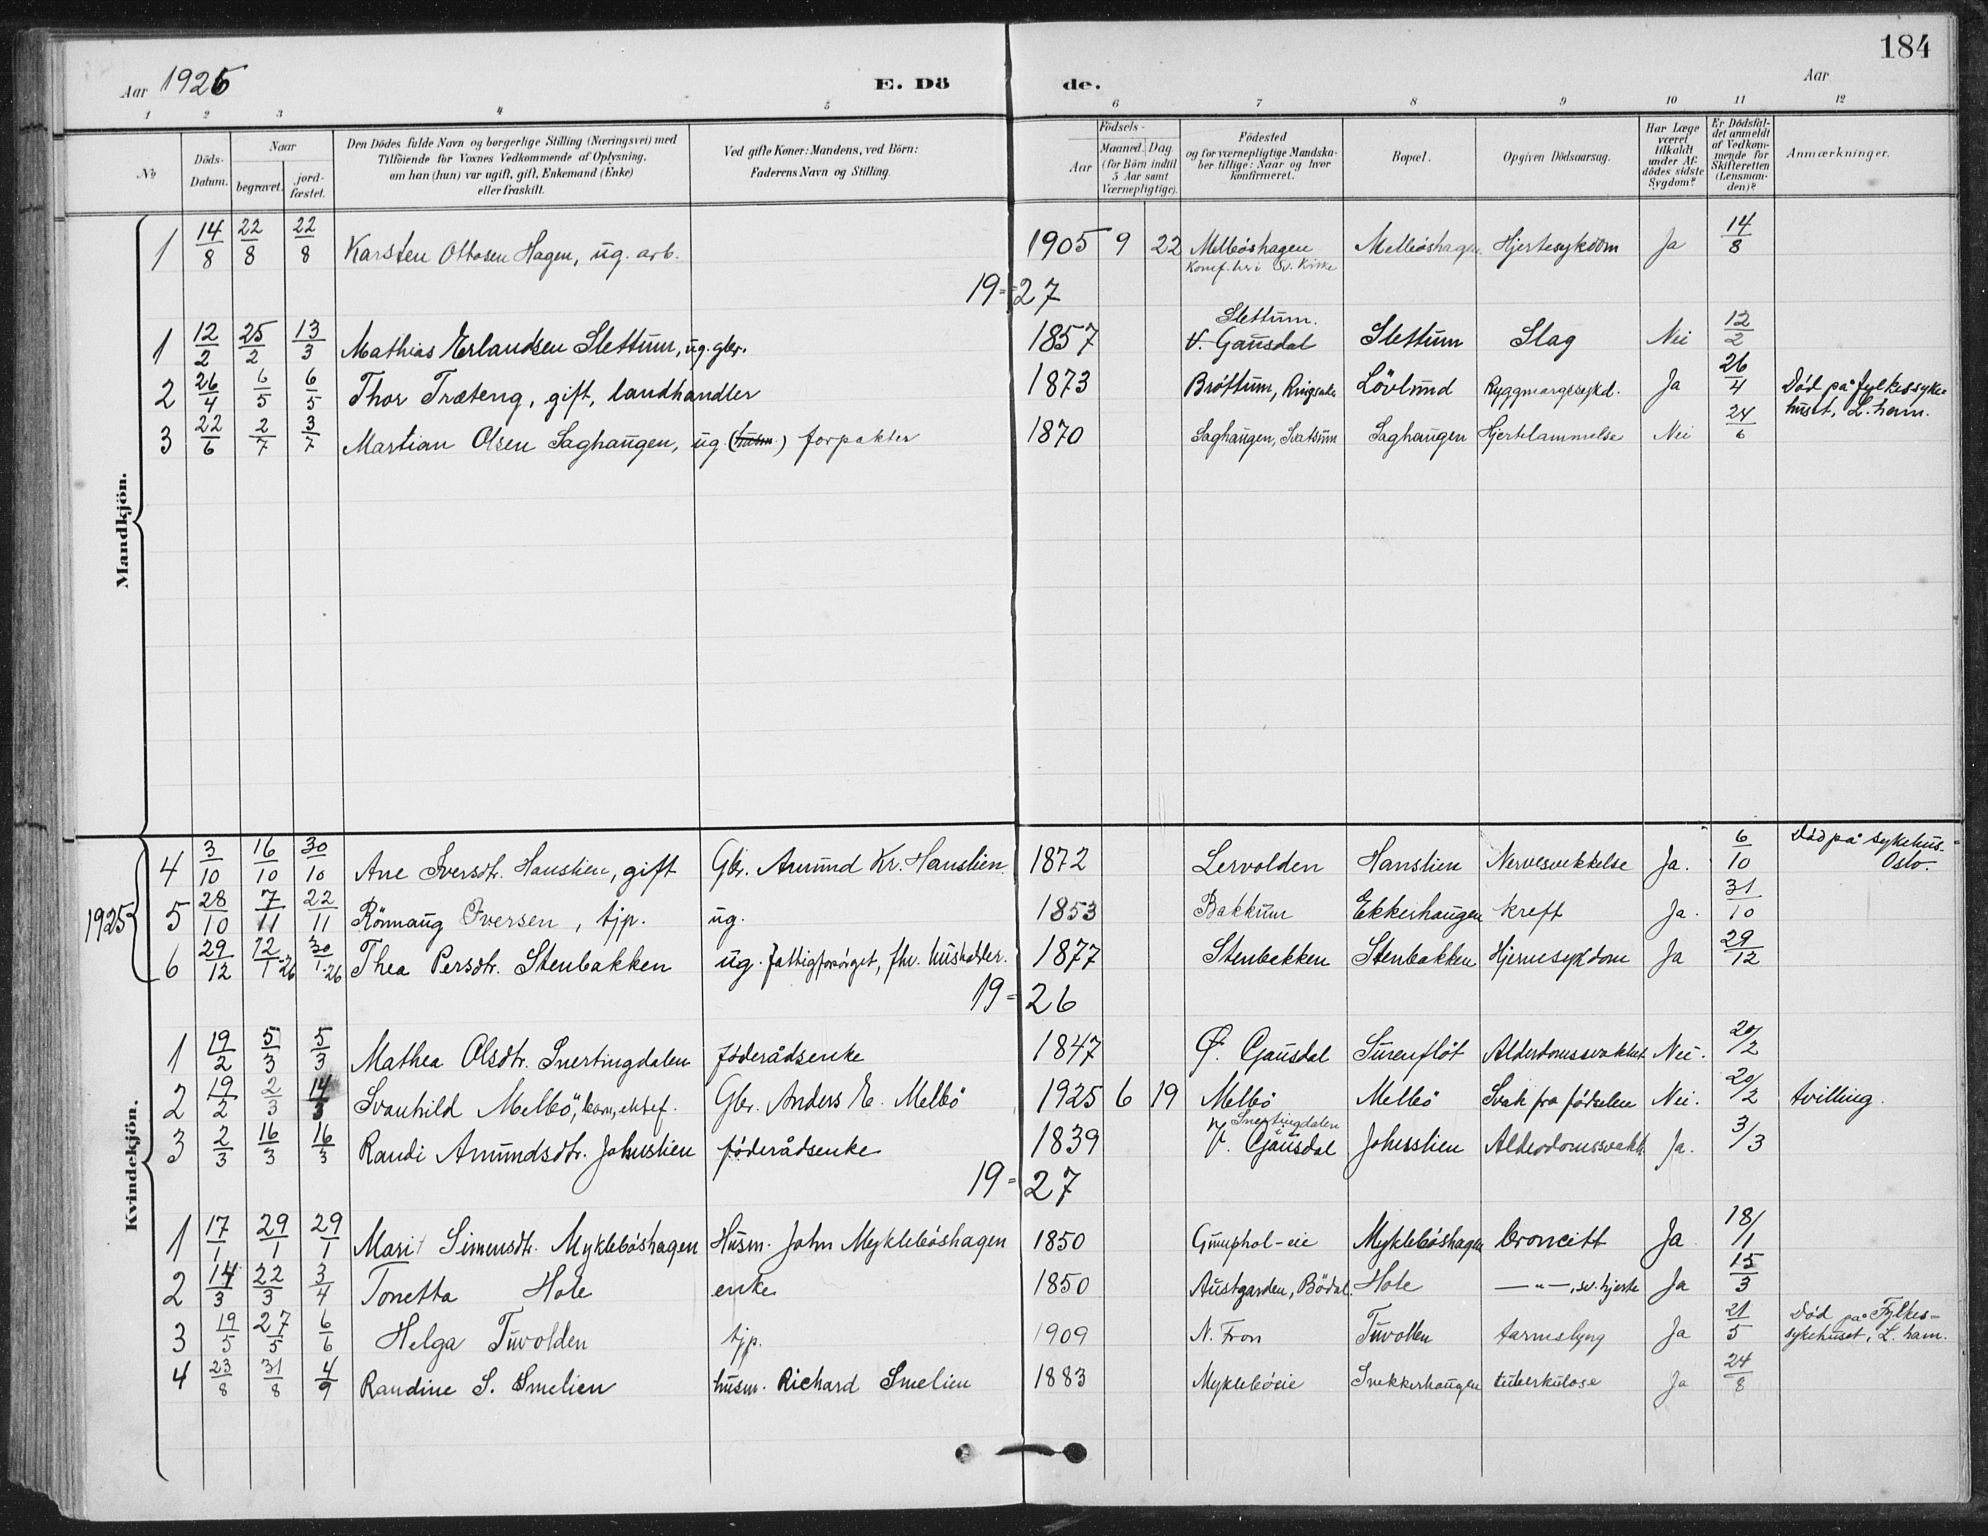 184
Aar 1926 E. Dö de. Aar
1 2 3 4 5 6 7 8 9 10 11 12
No
Döds-Datum.
Naar begravet. jord-fæstet.
Den Dödes fulde Navn og borgerlige Stilling (Næringsvei) med Tilföiende for Voxnes Vedkommende af Oplysning, om han (hun) var ugift, gift, Enkemand (Enke) eller fraskilt.
Ved gifte Koner: Mandens, ved Börn: Faderens Navn og Stilling.
Födsels- Aar Maaned. Dag. (for Börn indtil 5 Aar samt Værnepligtige).
Födested og for værnepligtige Mandskaber tillige: Naar og hvor konfirmeret.
Bopæl.
Opgiven Dödsaarsag.
Har Læge været tilkaldt under Afdödes sidste Sygdom?
Er Dödsfaldet anmeldt af Vedkommende for Skifteretten (Lensmanden)?
Anmærkninger.
Mandkjön.
1 14/8 22/8 22/8 Karsten Ottosen Hagen, ug. arb. 1905 9 22 Melbøshagen Konf. her i Sv. Kirke Melbøshagen Hjertesykdom Ja 14/8
19=27
1 12/2 25/2 13/3 Mathias Erlandsen Slettum, ug. gbr. 1857 Slettum. V. Gausdal Slettum Slag Nei 12/2
2 26/4 6/5 6/5 Thor Træteng, gift, landhandler 1873 Brøttum, Ringsaker Lövlund Ryggmargssykd. Ja 26/4 Död på fylkessykehuset, L.ham.
3 22/6 2/7 3/7 Martian Olsen Saghaugen, ug. (husm.) forpakter 1870 Saghaugen, Svatsum Saghaugen Hjertelammelse Nei 24/6
Kvindekjön.
1925
4 3/10 16/10 30/10 Ane Iversdtr. Hanslien, gift Gbr. Amund Kr. Hanslien. 1872 Lervolden Hanslien Nervesvekkelse Ja. 6/10 Död på sykehus- Oslo.
5 28/10 7/11 22/11 Rönnaug Iversen, tjp. ug. 1853 Bakkum Ekkerhaugen kreft Ja. 31/10
6 29/12 12/1-26 30/1-26 Thea Persdtr. Stenbakken ug. fattigforsørget, fhv. husholder. 1877 Stenbakken Stenbakken Hjernesykdom Ja 29/12
19=26
1 19/2 5/3 5/3 Mathea Olsdtr. Snertingdalen föderådsenke 1847 Ø. Gausdal Surenflöt Alderdomssvakhet Nei. 20/2
2 19/2 2/3 14/3 Svanhild Melbö, barn, ektef. Gbr. Anders E. Melbö 1925 6 19 Melbö Melbö Svak fra fødselen Nei. 20/2 tvilling.
3 2/3 16/3 16/3 Randi Amundsdtr. Johnslien föderådsenke 1839 Snertingdalen i V. Gausdal Johnslien Alderdomssvakh. Ja. 3/3
19=27
1 17/1 29/1 29/1 Marit Simensdtr. Myklebøshagen Husm. John Myklebøshagen 1850 Gumphol-eie Myklebøshagen broncitt Ja 18/1
2 14/3 22/3 3/4 Tonetta Hole enke 1850 Austgarden, Bödal. Hole —"—, sv. hjerte Ja 15/3
3 19/5 27/5 6/6 Helga Tuvolden tjp. 1909 N. Fron Tuvollen tarmslyng Ja 21/5 Död på Fylkes-sykehuset, L. ham.
4 23/8 31/8 4/9 Randine S. Smelien husm. Richard Smelien 1883 Myklebøeie Snekkerhaugen tuberkulose Ja 24/8